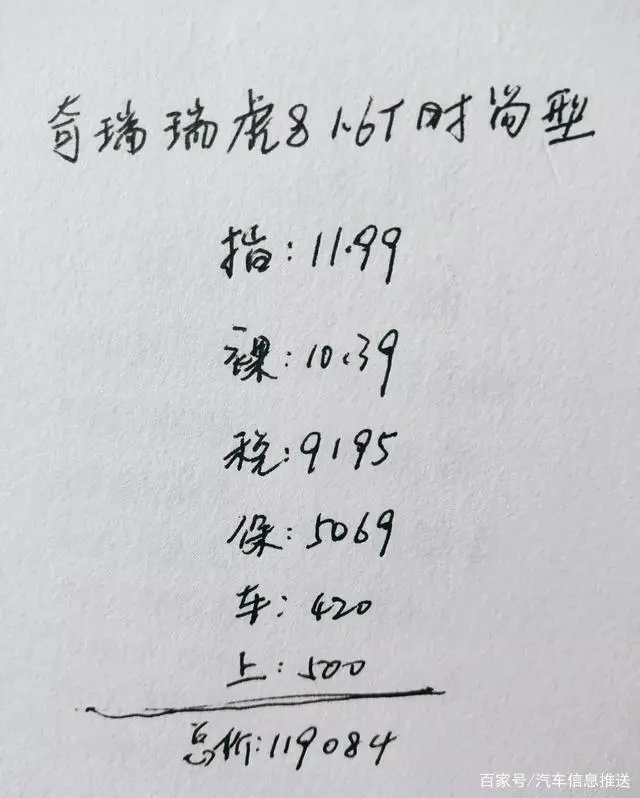 奇瑞瑞虎8 1.6T时尚型
指:11.99
裸:10.39
税:9195
保:5069
车:420
上:500
总价:119084
百家号/汽车信息推送